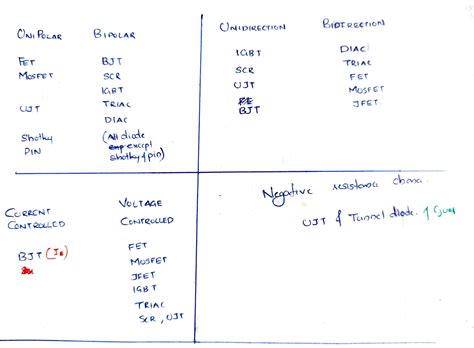 UniPolar BiPolar
FET BJT
MOSFET SCR
IGBT
UJT TRIAC
DIAC
Shotky (All diode
PIN except
shotky & pin)
UNIDIRECTION BIDIRECTION
IGBT DIAC
SCR TRIAC
UJT FET
BJT MOSFET
JFET
CURRENT VOLTAGE
CONTROLLED CONTROLLED
BJT (IB) FET
MOSFET
JFET
IGBT
TRIAC
SCR, UJT
Negative resistance
UJT & Tunnel diode